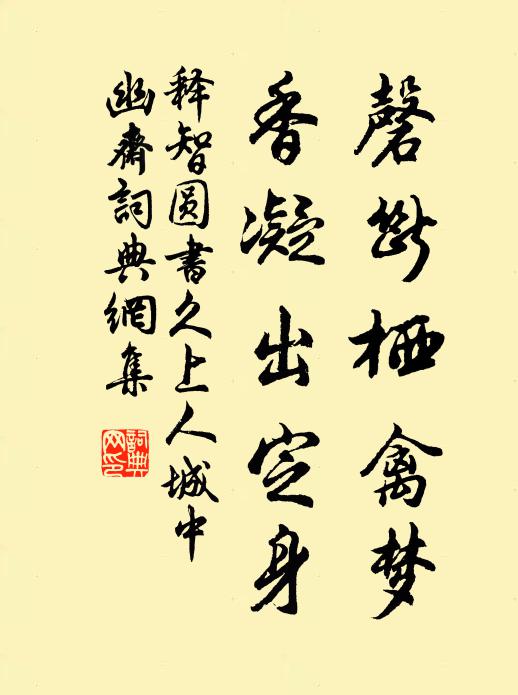 磬断栖禽梦
香凝出定身
释智圆书久上人城中
幽斋詞典網集
詞典
网印